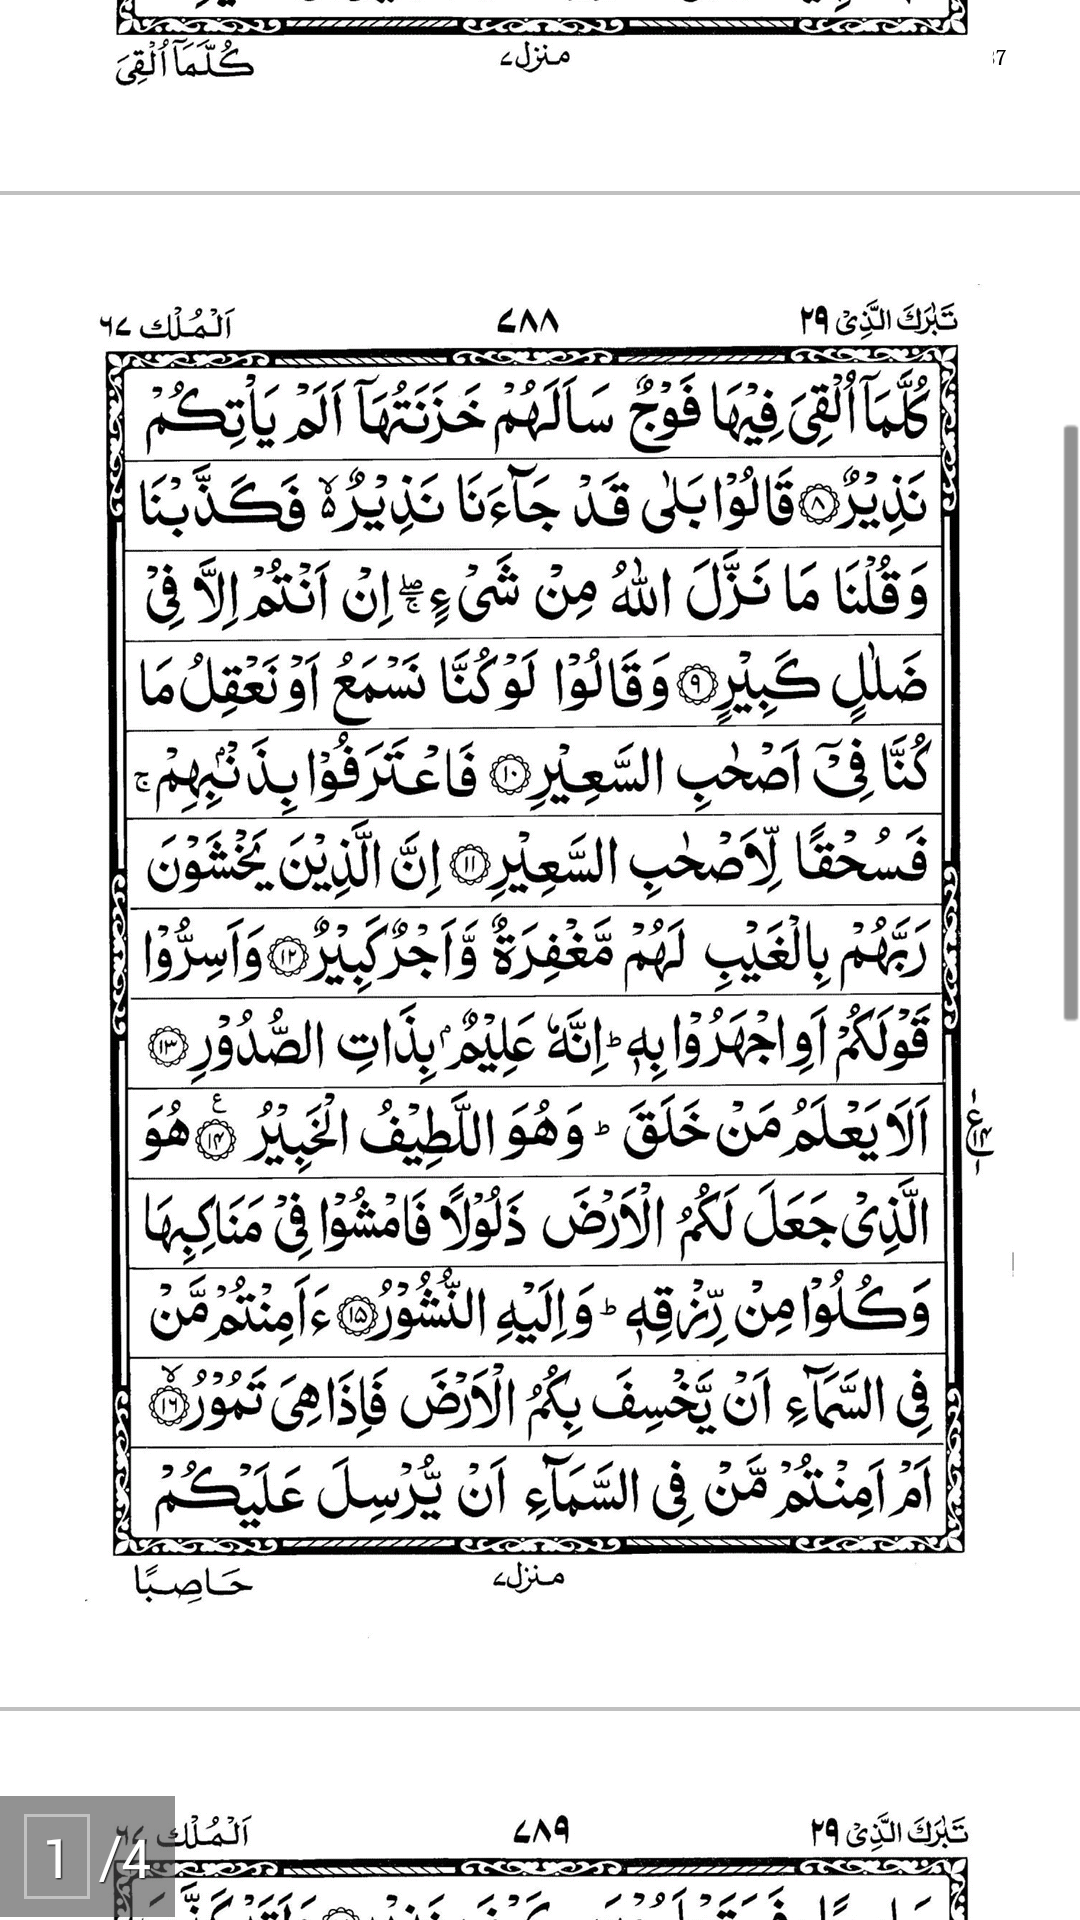 كُلَّمَآ اُلْقِىَ
منزل ٧
تَبٰرَكَ الَّذِىْ ٢٩
٧٨٨
اَلْمُلْك ٦٧
كُلَّمَآ اُلْقِىَ فِيْهَا فَوْجٌ سَاَلَهُمْ خَزَنَتُهَآ اَلَمْ يَاْتِكُمْ
نَذِيْرٌ ﴿٨﴾ قَالُوْا بَلٰى قَدْ جَآءَنَا نَذِيْرٌ ۙ۬ فَكَذَّبْنَا
وَقُلْنَا مَا نَزَّلَ اللّٰهُ مِنْ شَىْءٍ ۖۚ اِنْ اَنْتُمْ اِلَّا فِىْ
ضَلٰلٍ كَبِيْرٍ ﴿٩﴾ وَقَالُوْا لَوْ كُنَّا نَسْمَعُ اَوْ نَعْقِلُ مَا
كُنَّا فِىْٓ اَصْحٰبِ السَّعِيْرِ ﴿١٠﴾ فَاعْتَرَفُوْا بِذَنْۢبِهِمْ ۚ
فَسُحْقًا لِّاَصْحٰبِ السَّعِيْرِ ﴿١١﴾ اِنَّ الَّذِيْنَ يَخْشَوْنَ
رَبَّهُمْ بِالْغَيْبِ لَهُمْ مَّغْفِرَةٌ وَّاَجْرٌ كَبِيْرٌ ﴿١٢﴾ وَاَسِرُّوْا
قَوْلَكُمْ اَوِ اجْهَرُوْا بِهٖ ؕ اِنَّهٗ عَلِيْمٌۢ بِذَاتِ الصُّدُوْرِ ﴿١٣﴾
اَلَا يَعْلَمُ مَنْ خَلَقَ ؕ وَهُوَ اللَّطِيْفُ الْخَبِيْرُ ﴿١٤﴾ ع هُوَ
ع ١٤ ١
الَّذِىْ جَعَلَ لَكُمُ الْاَرْضَ ذَلُوْلًا فَامْشُوْا فِىْ مَنَاكِبِهَا
وَكُلُوْا مِنْ رِّزْقِهٖ ؕ وَاِلَيْهِ النُّشُوْرُ ﴿١٥﴾ ءَاَمِنْتُمْ مَّنْ
فِى السَّمَآءِ اَنْ يَّخْسِفَ بِكُمُ الْاَرْضَ فَاِذَا هِىَ تَمُوْرُ ۙ ﴿١٦﴾
اَمْ اَمِنْتُمْ مَّنْ فِى السَّمَآءِ اَنْ يُّرْسِلَ عَلَيْكُمْ
منزل ٧
حَاصِبًا
تَبٰرَكَ الَّذِىْ ٢٩
٧٨٩
اَلْمُلْك ٦٧
1 /4